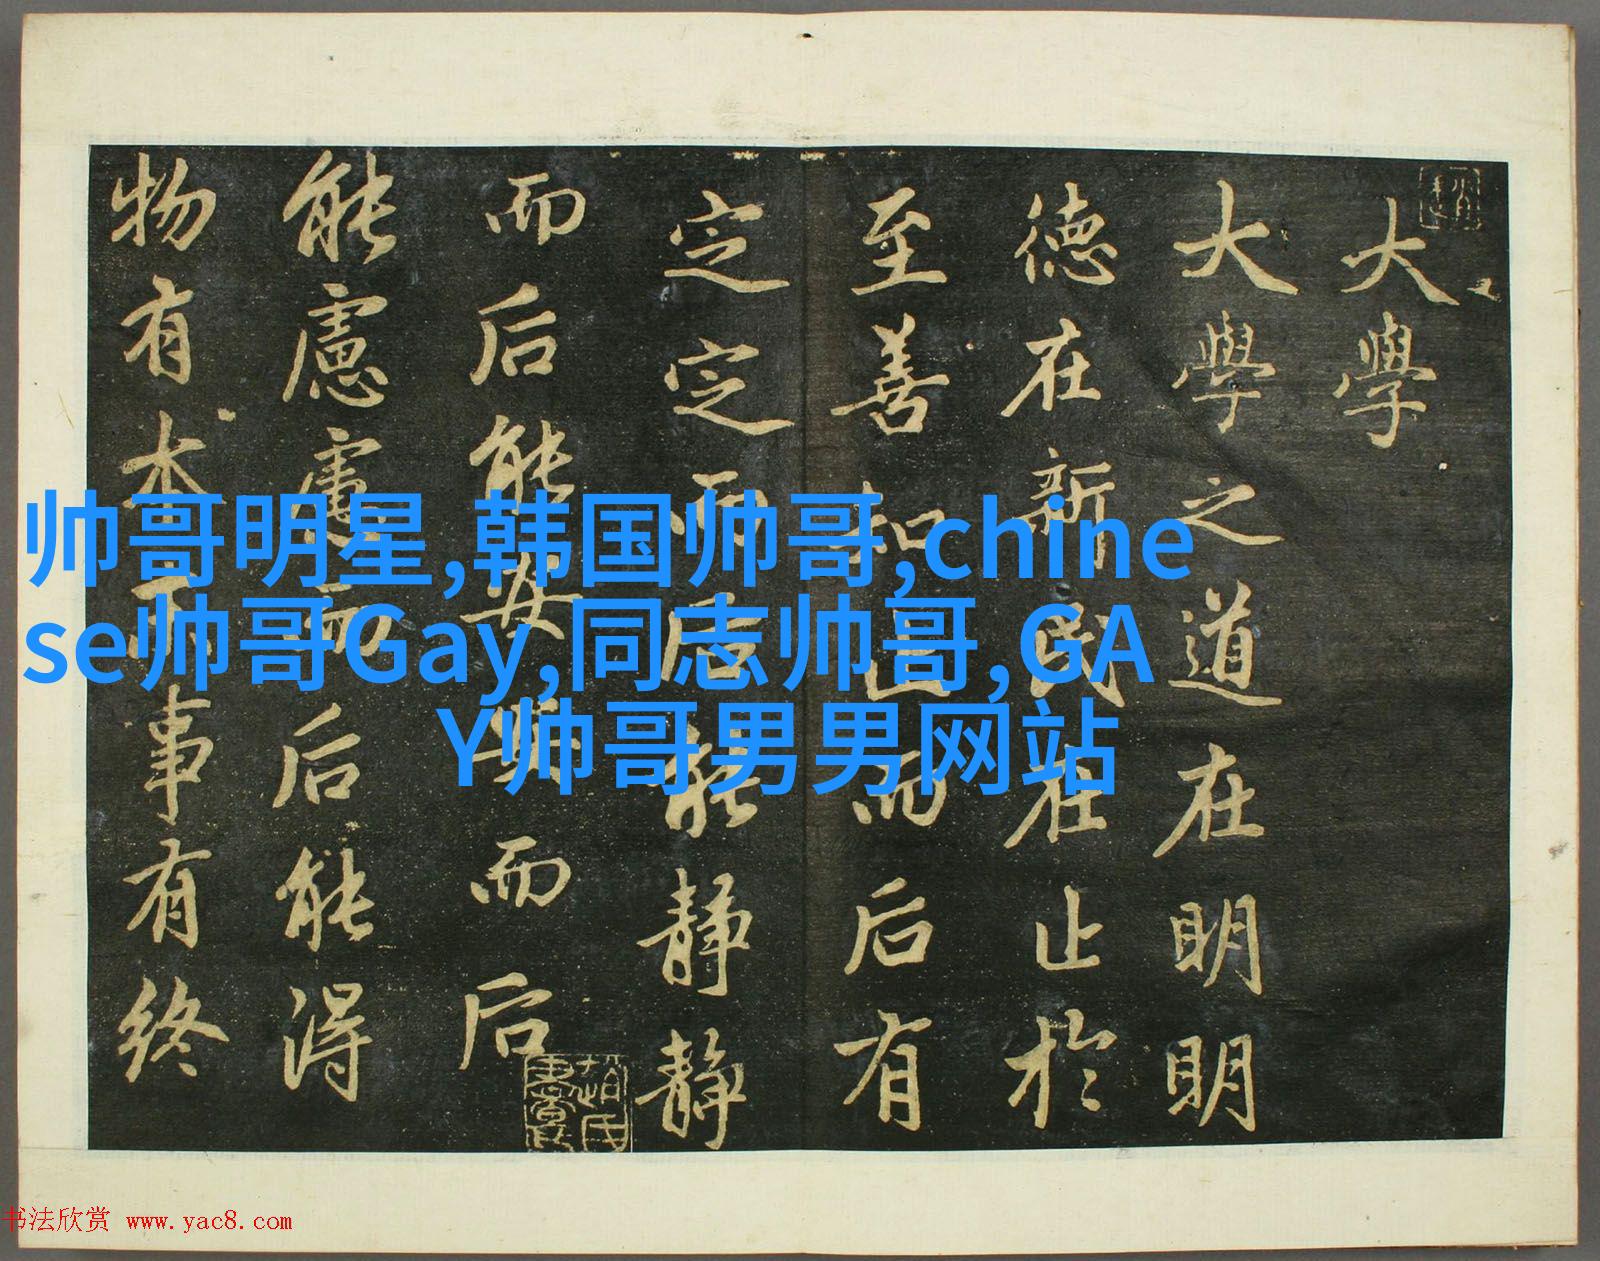 大學
大學之道在明明
德在新民在止於
至善知止而后有
定定而后能静静
而后能安安而后
能慮慮而后能得
物有本末事有終
帅哥明星,韩国帅哥,chine
se帅哥Gay,同志帅哥,GA
Y帅哥男男网站
书法欣赏 www.yac8.com